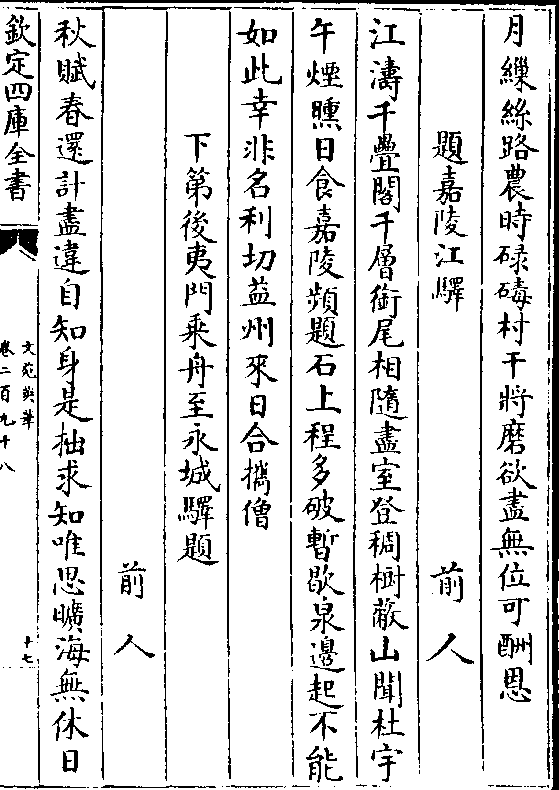 月繅絲路農時碌碡村干將磨欲盡無位可酬恩
題嘉陵江驛
前人
江濤千疊閣千層銜尾相隨盡室登稠樹蔽山聞杜宇
午煙曛日食嘉陵頻題石上程多破暫歇泉邊起不能
如此幸非名利切益州來日合攜僧
下第後夷門乗舟至永城驛題
前人
秋賦春還計盡違自知身是拙求知唯思曠海無休日
欽定四庫全書
文苑英華
卷二百九十八
十七